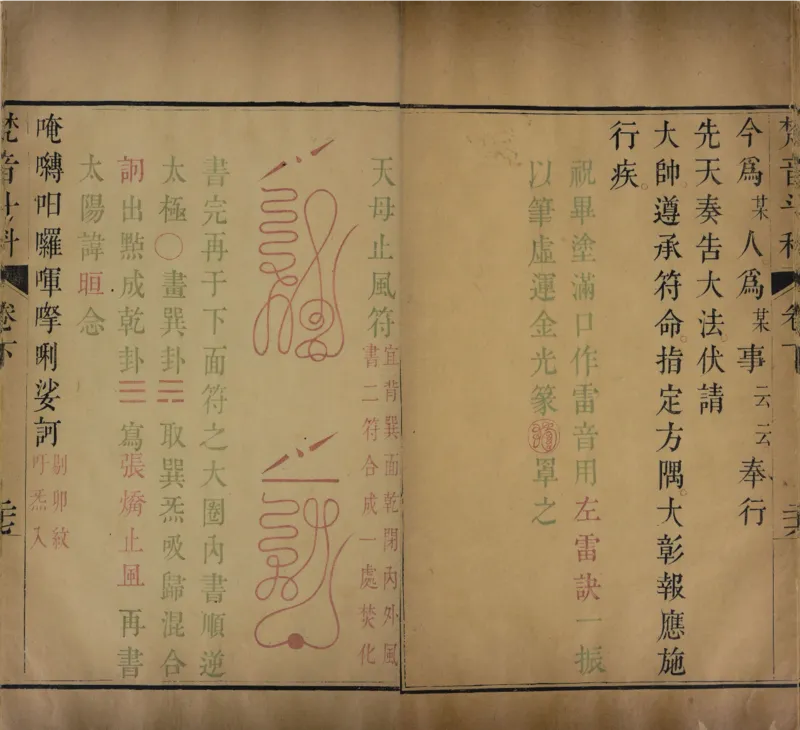 梵音斗科 卷下
今爲某人爲某事云云奉行
先天奏告大法伏請
大帥。遵承符命。指定方隅。大彰報應施
行疾。
祝畢塗滿口作雷音用左雷訣一振
以筆虛運金光篆罩之
天母止風符
宜背巽面乾閉內外風
書二符合成一處焚化
書完再于下面符之大圈內書順逆
太極〇畫巽卦☴取巽炁吸歸混合
詗出點成乾卦☰寫張燏止風再書
太陽諱晅念
唵囀呬囉喗唎娑訶
剔卯紋
吁炁入
梵音斗科 卷下